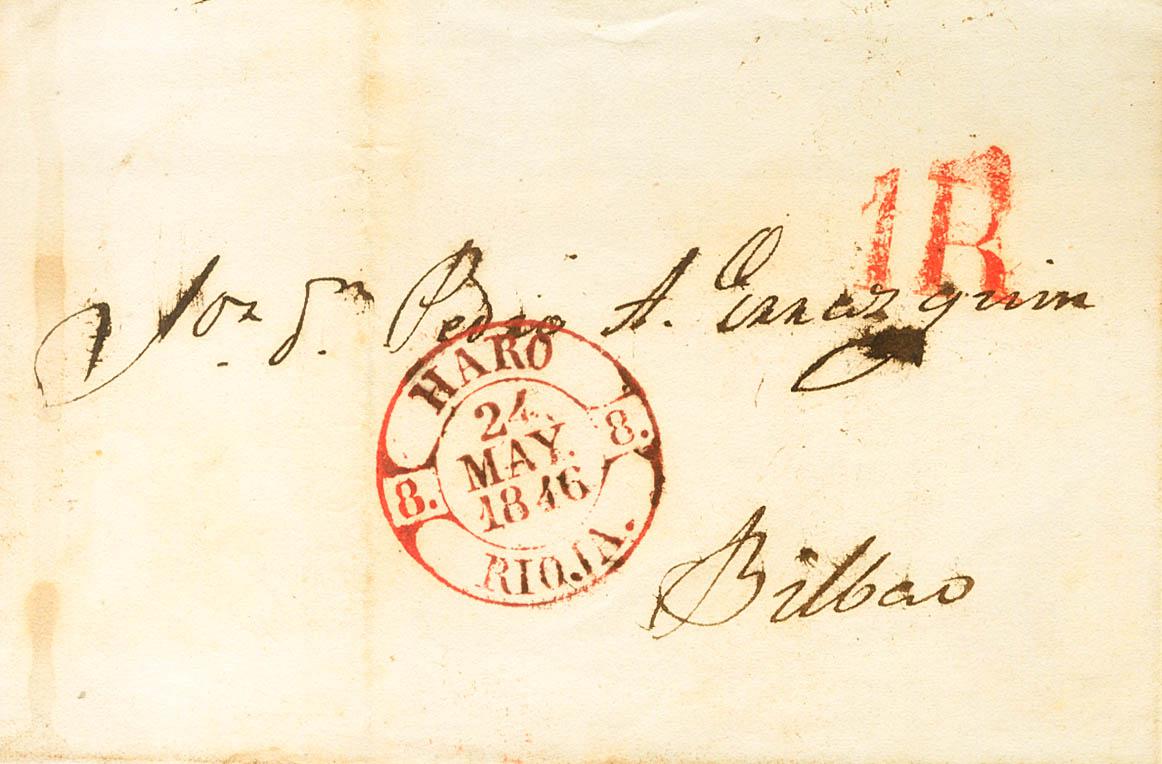 1R
Sor. Dn. Pedro A. Errazquin
HARO
24
MAY.
1846
8.
8.
RIOJA.
Bilbao